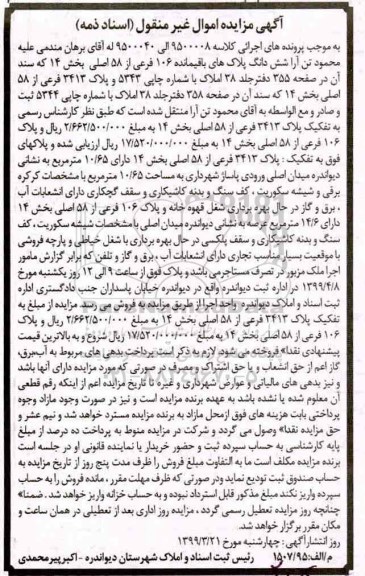 آگهی مزایده اموال غیر منقول (اسناد ذمه)
به موجب پرونده های اجرائی کلاسه ۹۵۰۰۰۰۸ الی ۹۵۰۰۰۴۰ له آقای برهان مندمی علیه
محمود تن آرا شش دانگ پلاک های باقیمانده ۱۰۶ فرعی از ۵۸ اصلی بخش ۱۴ که سند
آن در صفحه ۳۵۵ دفترجلد ۳۸ املاک با شماره چاپی ۵۳۴۳ و پلاک ۳۴۱۳ فرعی از ۵۸
اصلی بخش ۱۴ که سند آن در صفحه ۳۵۸ دفترجلد ۳۸ املاک با شماره چاپی ۵۳۴۴ ثبت
و صادر و مع الواسطه به آقای محمود تن آرا منتقل شده است که طبق نظر کارشناس رسمی
به تفکیک پلاک ۳۴۱۳ فرعی از ۵۸ اصلی بخش ۱۴ به مبلغ ۲/۶۶۲/۵۰۰/۰۰۰ ریال و پلاک
۱۰۶ فرعی از ۵۸ اصلی بخش ۱۴ به مبلغ ۱۷/۵۲۰/۰۰۰/۰۰۰ ریال ارزیابی شده و پلاکهای
فوق به تفکیک : پلاک ۳۴۱۳ فرعی از ۵۸ اصلی بخش ۱۴ دارای ۱۰/۶۵ مترمربع به نشانی
دیواندره میدان اصلی ورودی پاساژ شهرداری به مساحت ۱۰/۶۵ مترمربع با مشخصات کرکره
برقی و شیشه سکوریت ، کف سنگ و بدنه کاشیکاری و سقف گچکاری دارای انشعابات آب
، برق و گاز در حال بهره برداری شغل قهوه خانه و پلاک ۱۰۶ فرعی از ۵۸ اصلی بخش ۱۴
دارای ۱۴/۶ مترمربع عرصه به نشانی دیواندره میدان اصلی با مشخصات شیشه سکوریت ، کف
سنگ و بدنه کاشیکاری و سقف پلکسی در حال بهره برداری با شغل خیاطی و پارچه فروشی
با موقعیت بسیار مناسب تجاری دارای انشعابات آب ، برق و گاز و تلفن که برابر گزارش مامور
اجرا ملک مزبور در تصرف مستاجرمی باشد و پلاک فوق از ساعت ۹ الی ۱۲ روز یکشنبه مورخ
۱۳۹۹/۴/۸ در اداره ثبت دیواندره واقع در دیواندره خیابان پاسداران جنب دادگستری اداره
ثبت اسناد و املاک دیواندره واحد اجرا از طریق مزایده به فروش می رسد. مزایده از مبلغ به
تفکیک پلاک ۳۴۱۳ فرعی از ۵۸ اصلی بخش ۱۴ به مبلغ ۲/۶۶۲/۵۰۰/۰۰۰ ریال و پلاک
۱۰۶ فرعی از ۵۸ اصلی بخش ۱۴ به مبلغ ۱۷/۵۲۰/۰۰۰/۰۰۰ ریال شروع و به بالاترین قیمت
پیشنهادی نقداً فروخته می شود. لازم به ذکر است پرداخت بدهی های مربوط به آب،برق،
گاز اعم از حق انشعاب و یا حق اشتراک و مصرف در صورتی که مورد مزایده دارای آنها باشد
و نیز بدهی های مالیاتی و عوارض شهرداری و غیره تا تاریخ مزایده اعم از اینکه رقم قطعی
آن معلوم شده یا نشده باشد به عهده برنده مزایده است و نیز در صورت وجود مازاد وجوه
پرداختی بابت هزینه های فوق ازمحل مازاد به برنده مزایده مسترد خواهد شد و نیم عشر و
حق مزایده نقداً وصول می گردد و شرکت در مزایده منوط به پرداخت ده درصد از مبلغ
پایه کارشناسی به حساب سپرده ثبت و حضور خریدار یا نماینده قانونی او در جلسه است
برنده مزایده مکلف است ما به التفاوت مبلغ فروش را ظرف مدت پنج روز از تاریخ مزایده به
حساب صندوق ثبت تودیع نماید ودر صورتی که ظرف مهلت مقرر ، مانده فروش را به حساب
سپرده واریز نکند مبلغ مذکور قابل استرداد نبوده و به حساب خزانه واریز خواهد شد . ضمناً
چنانچه روز مزایده تعطیل رسمی گردد ، مزایده روز اداری بعد از تعطیلی در همان ساعت و
مکان مقرر برگزار خواهد شد.
روز انتشار آگهی : چهارشنبه مورخ ۱۳۹۹/۳/۲۱
م/الف:۱۵۰۷/۹۵ رئیس ثبت اسناد و املاک شهرستان دیواندره - اکبر پیرمحمدی